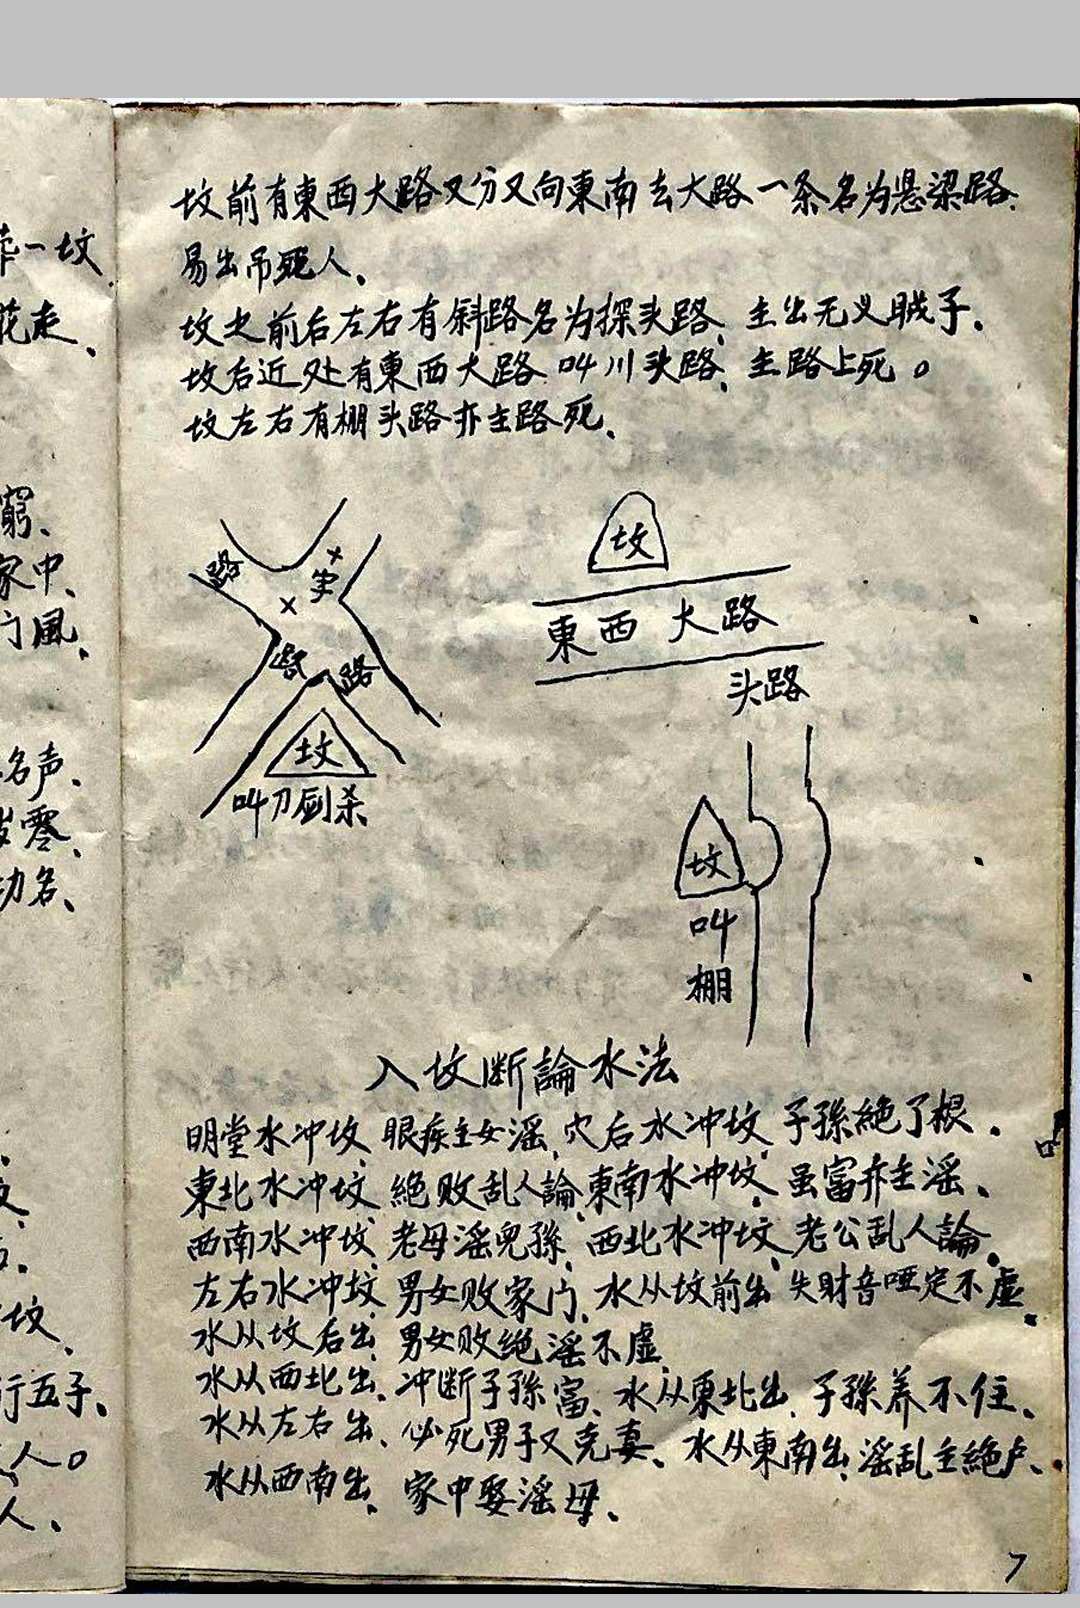 坟前有東西大路又分又向東南去大路一条名为悬梁路、
易出吊死人、
坟之前后左右有斜路名为探头路、主出无义贼子、
坟后近处有東西大路叫川头路、主路上死。
坟左右有棚头路亦主路死、
路
路
坟
叫刀剑杀
坟
東西大路
头路
坟
叫
棚
入坟断論水法
明堂水冲坟、眼疾主女淫、穴后水冲坟、子孫絶了根.
東北水冲坟、絶败乱人論、東南水冲坟、虽富亦主淫、
西南水冲坟、老母淫兒孫、西北水冲坟、老公乱人論、
左右水冲坟、男女败家门、水从坟前出、失财音哑定不虚、
水从坟后出、男女败绝淫不虚、
水从西北出、冲断子孫富、水从東北出、子孫养不住、
水从左右出、必死男子又克妻、水从東南出、淫乱主絶户、
水从西南出、家中娶淫母、
7
一坟
走、
窮、
家中、
门風、
名声、
零、
功名、
坟、
行五子、
人。
人、